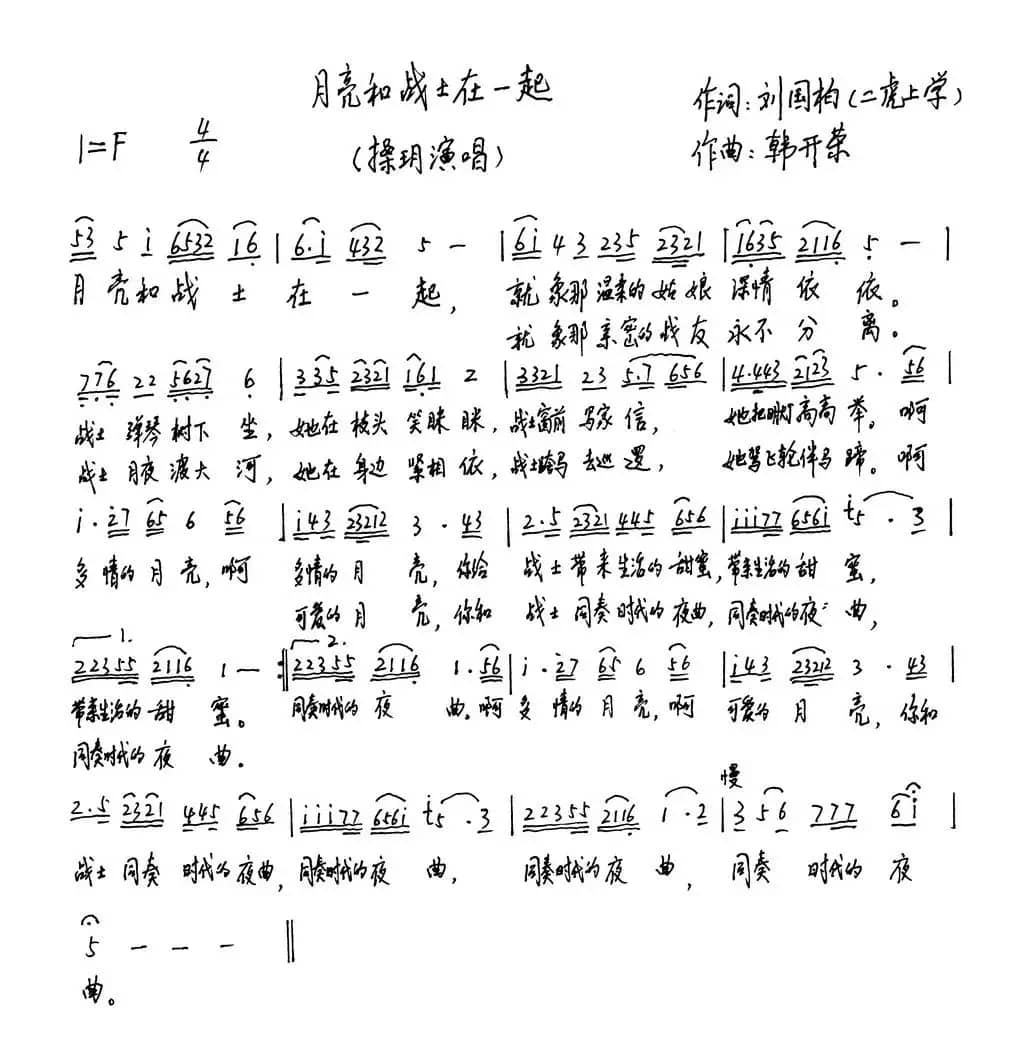 月亮和战士在一起
作词:刘国柏(二虎上学)
1=F 4/4 (操玥演唱) 作曲:韩开荣
53 5 i 6532 16 | 6·i 432 5 — | 6i 43 235 2321 | 1635 2116 5 — |
月亮和战士在一起, 就象那温柔的姑娘深情依依。
就象那亲密的战友永不分离。
776 22 5627 6 | 335 2321 161 2 | 3321 23 5·7 656 | 4·443 2123 5· 56 |
战士弹琴树下坐, 她在枝头笑眯眯, 战士窗前写家信, 她把明灯高高举。啊
战士月夜渡大河, 她在身边紧相依, 战士跨马去巡逻, 她驾飞轮伴马蹄。啊
i·i7 65 6 56 | i43 23212 3· 43 | 2·5 2321 445 656 | iii77 656i i5·3 |
多情的月亮,啊 多情的月亮,你给 战士带来生活的甜蜜,带来生活的甜蜜,
可爱的月亮,你和 战士同奏时代的夜曲,同奏时代的夜曲,
1. 2.
22355 2116 1 — :‖ 22355 2116 1· 56 | i·i7 65 6 56 | i43 23212 3· 43 |
带来生活的甜蜜。 同奏时代的夜曲。啊 多情的月亮,啊 可爱的月亮,你和
同奏时代的夜曲。
慢
2·5 2321 445 656 | iii77 656i i5·3 | 22355 2116 i·2 | 3 56 777 6i |
战士同奏时代的夜曲,同奏时代的夜曲, 同奏时代的夜曲, 同奏时代的夜
5 — — — ‖
曲。